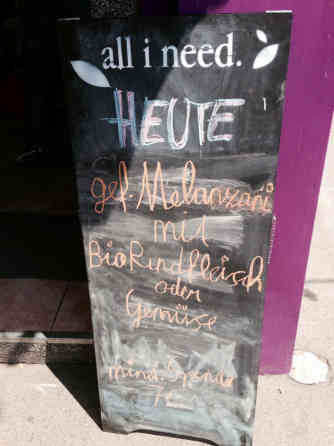 all i need.
HEUTE
gef. Melanzani
mit
BioRindfleisch
oder
Gemüse